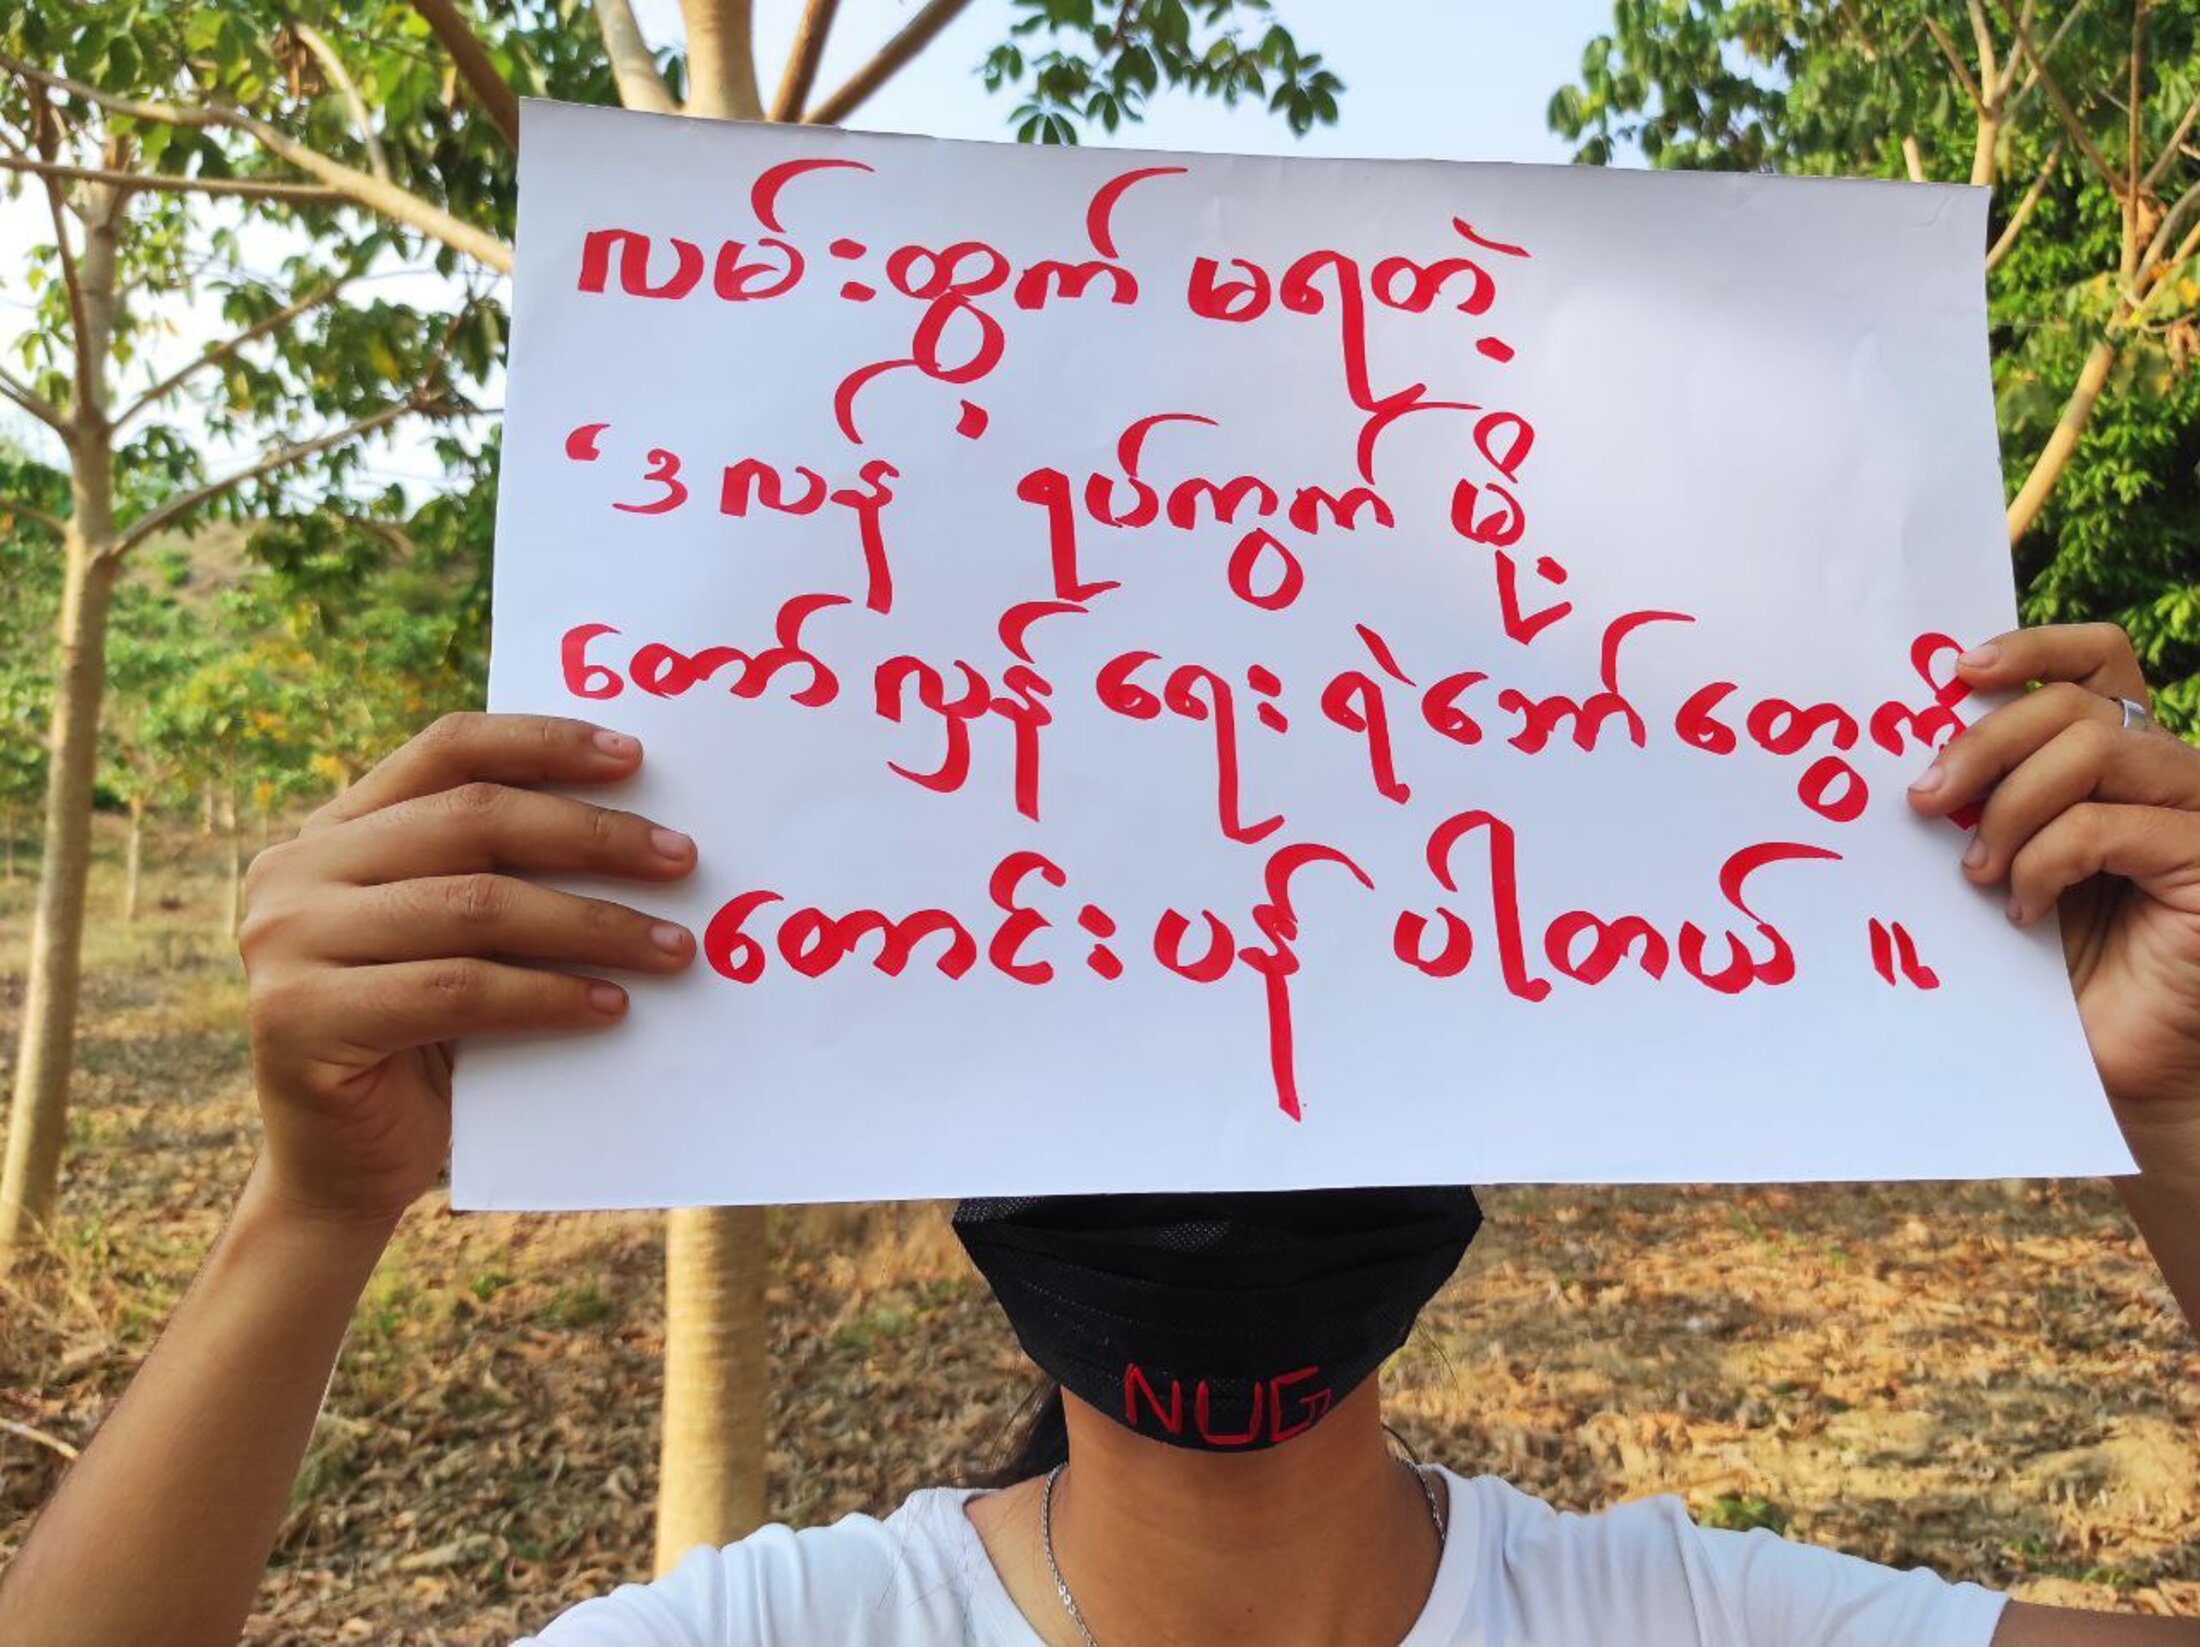 လမ်းထွက် မရတဲ့
‘ဒလန်’ ရပ်ကွက် မို့
တော်လှန်ရေးရဲဘော်တွေကို
တောင်းပန် ပါတယ် ။
NUG